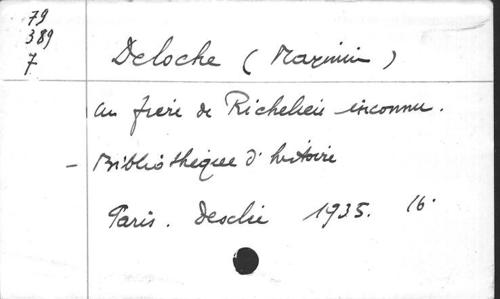 79
389
7
Deloche (Maximin)
Un frère de Richelieu inconnu.
- Bibliothèque d'histoire
Paris. Desclée 1935. 16°